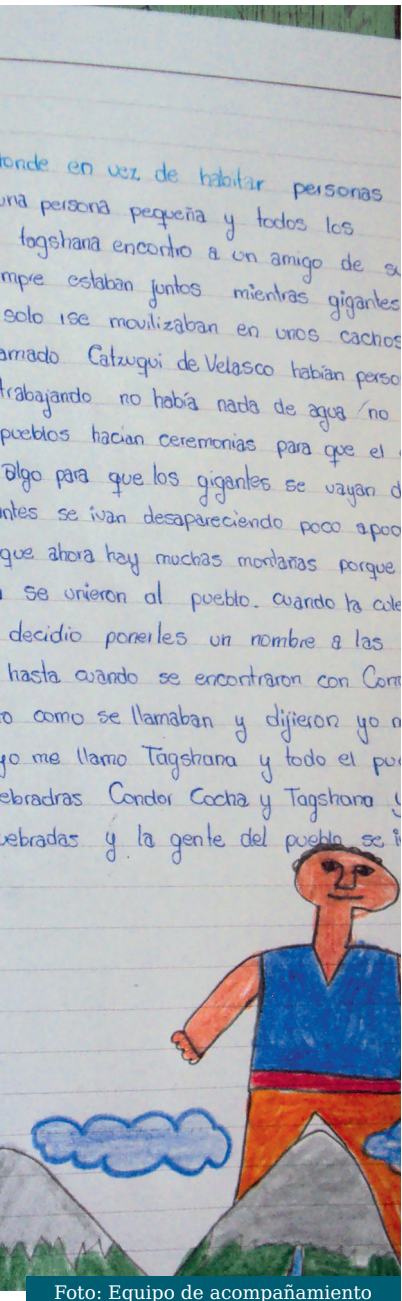 donde en vez de habitar personas
una persona pequeña y todos los
tagshana encontro a un amigo de su
mpre estaban juntos mientras gigantes
solo ise movilizaban en unos cachos
amado Catzuqui de Velasco habían perso
trabajando no había nada de agua no
pueblos hacian ceremonias para que el
algo para que los gigantes se vayan d
ntes se ivan desapareciendo poco apoc
que ahora hay muchas montañas porque
se unieron al pueblo. cuando la cule
decidio ponerles un nombre a las
hasta cuando se encontraron con Con
o como se llamaban y dijieron yo m
yo me llamo Tagshana y todo el pu
ebradras Condor Cocha y Tagshana y
uebradas y la gente del pueblo se i
Foto: Equipo de acompañamiento